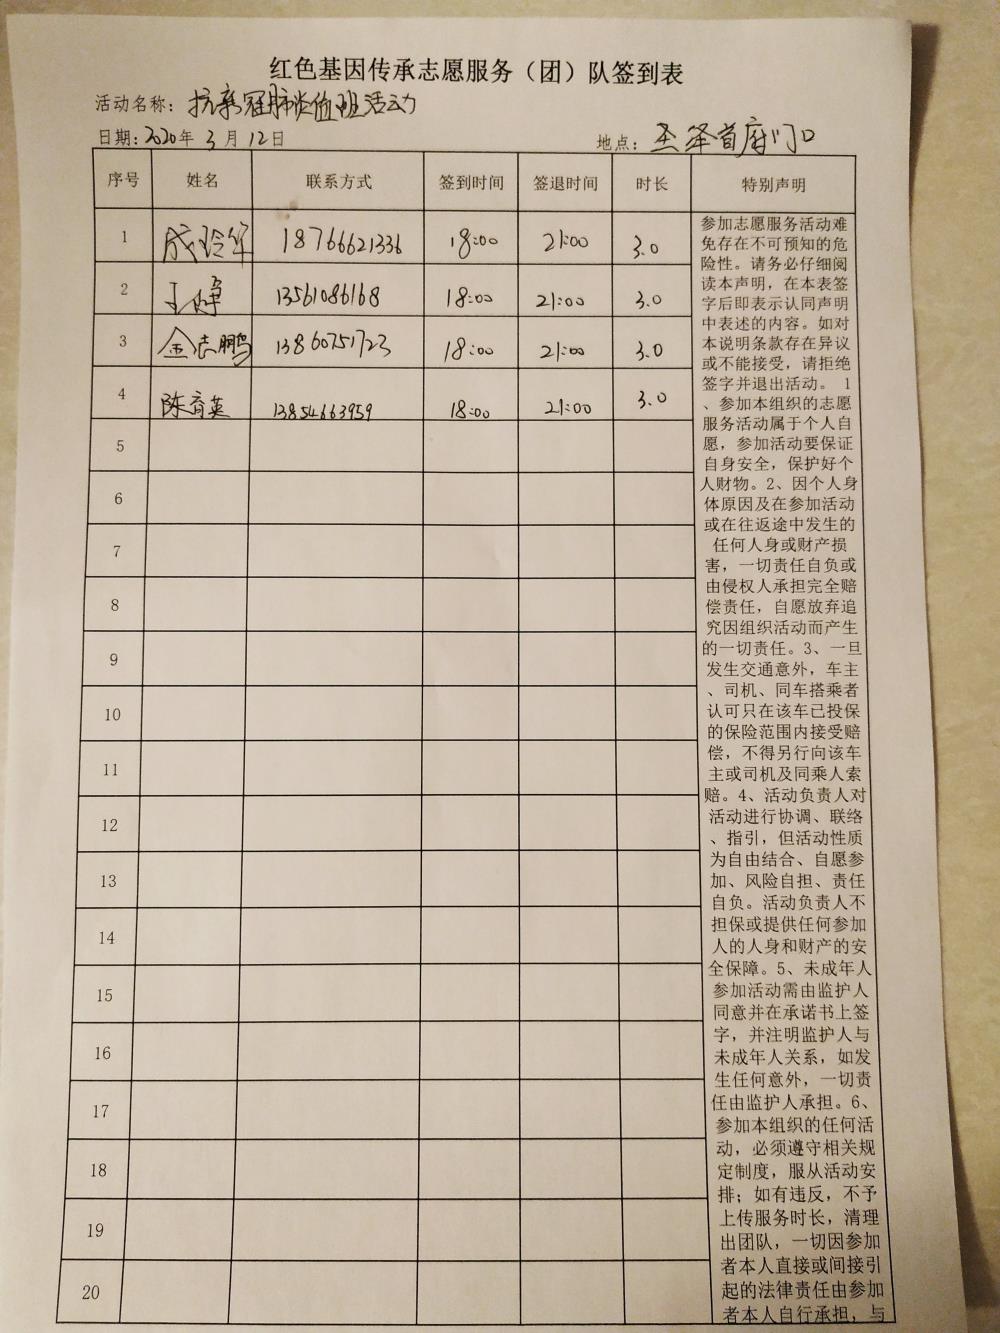 红色基因传承志愿服务（团）队签到表
活动名称：抗新冠肺炎值班活动
日期：2020年3月12日 地点：圣泽首府门口
序号 姓名 联系方式 签到时间 签退时间 时长 特别声明
1 成玲华 18766621336 18:00 21:00 3.0
2 王峰 13561086168 18:00 21:00 3.0
3 金志鹏 13860751723 18:00 21:00 3.0
4 陈育英 13854663959 18:00 21:00 3.0
5
6
7
8
9
10
11
12
13
14
15
16
17
18
19
20
参加志愿服务活动难
免存在不可预知的危
险性。请务必仔细阅
读本声明，在本表签
字后即表示认同声明
中表述的内容。如对
本说明条款存在异议
或不能接受，请拒绝
签字并退出活动。 1
、参加本组织的志愿
服务活动属于个人自
愿，参加活动要保证
自身安全，保护好个
人财物。2、因个人身
体原因及在参加活动
或在往返途中发生的
任何人身或财产损
害，一切责任自负或
由侵权人承担完全赔
偿责任，自愿放弃追
究因组织活动而产生
的一切责任。3、一旦
发生交通意外，车主
、司机、同车搭乘者
认可只在该车已投保
的保险范围内接受赔
偿，不得另行向该车
主或司机及同乘人索
赔。4、活动负责人对
活动进行协调、联络
、指引，但活动性质
为自由结合、自愿参
加、风险自担、责任
自负。活动负责人不
担保或提供任何参加
人的人身和财产的安
全保障。5、未成年人
参加活动需由监护人
同意并在承诺书上签
字，并注明监护人与
未成年人关系，如发
生任何意外，一切责
任由监护人承担。6、
参加本组织的任何活
动，必须遵守相关规
定制度，服从活动安
排；如有违反，不予
上传服务时长，清理
出团队，一切因参加
者本人直接或间接引
起的法律责任由参加
者本人自行承担，与